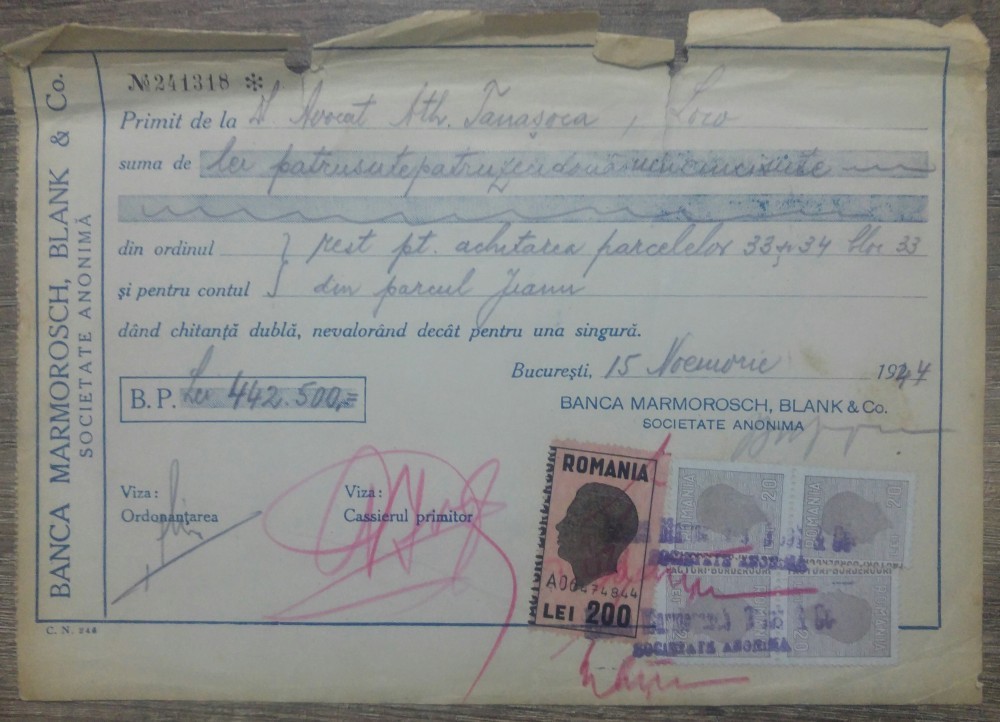 BANCA MARMOROSCH, BLANK & Co.
SOCIETATE ANONIMĂ
№ 241318 *
Primit de la D Avocat Ath. Tanașoca, Loco
suma de lei patrusutepatruzecidouămiicincisute
din ordinul } rest pt. achitarea parcelelor 33 și 34 bloc 33
și pentru contul } din parcul Jianu
dând chitanță dublă, nevalorând decât pentru una singură.
București, 15 Noemvrie 1947
B. P. Lei 442.500,=
BANCA MARMOROSCH, BLANK & Co.
SOCIETATE ANONIMA
Viza:
Ordonanțarea
Viza:
Cassierul primitor
ROMANIA
FACTURI BORDEROURI
A00474844
LEI 200
ROMANIA 20
ROMANIA 20
FACTURI-BORDEROURI
FACTURI-BORDEROURI
ROMANIA 20
SOCIETATE ANONIMA
SOCIETATE ANONIMA
C. N. 248